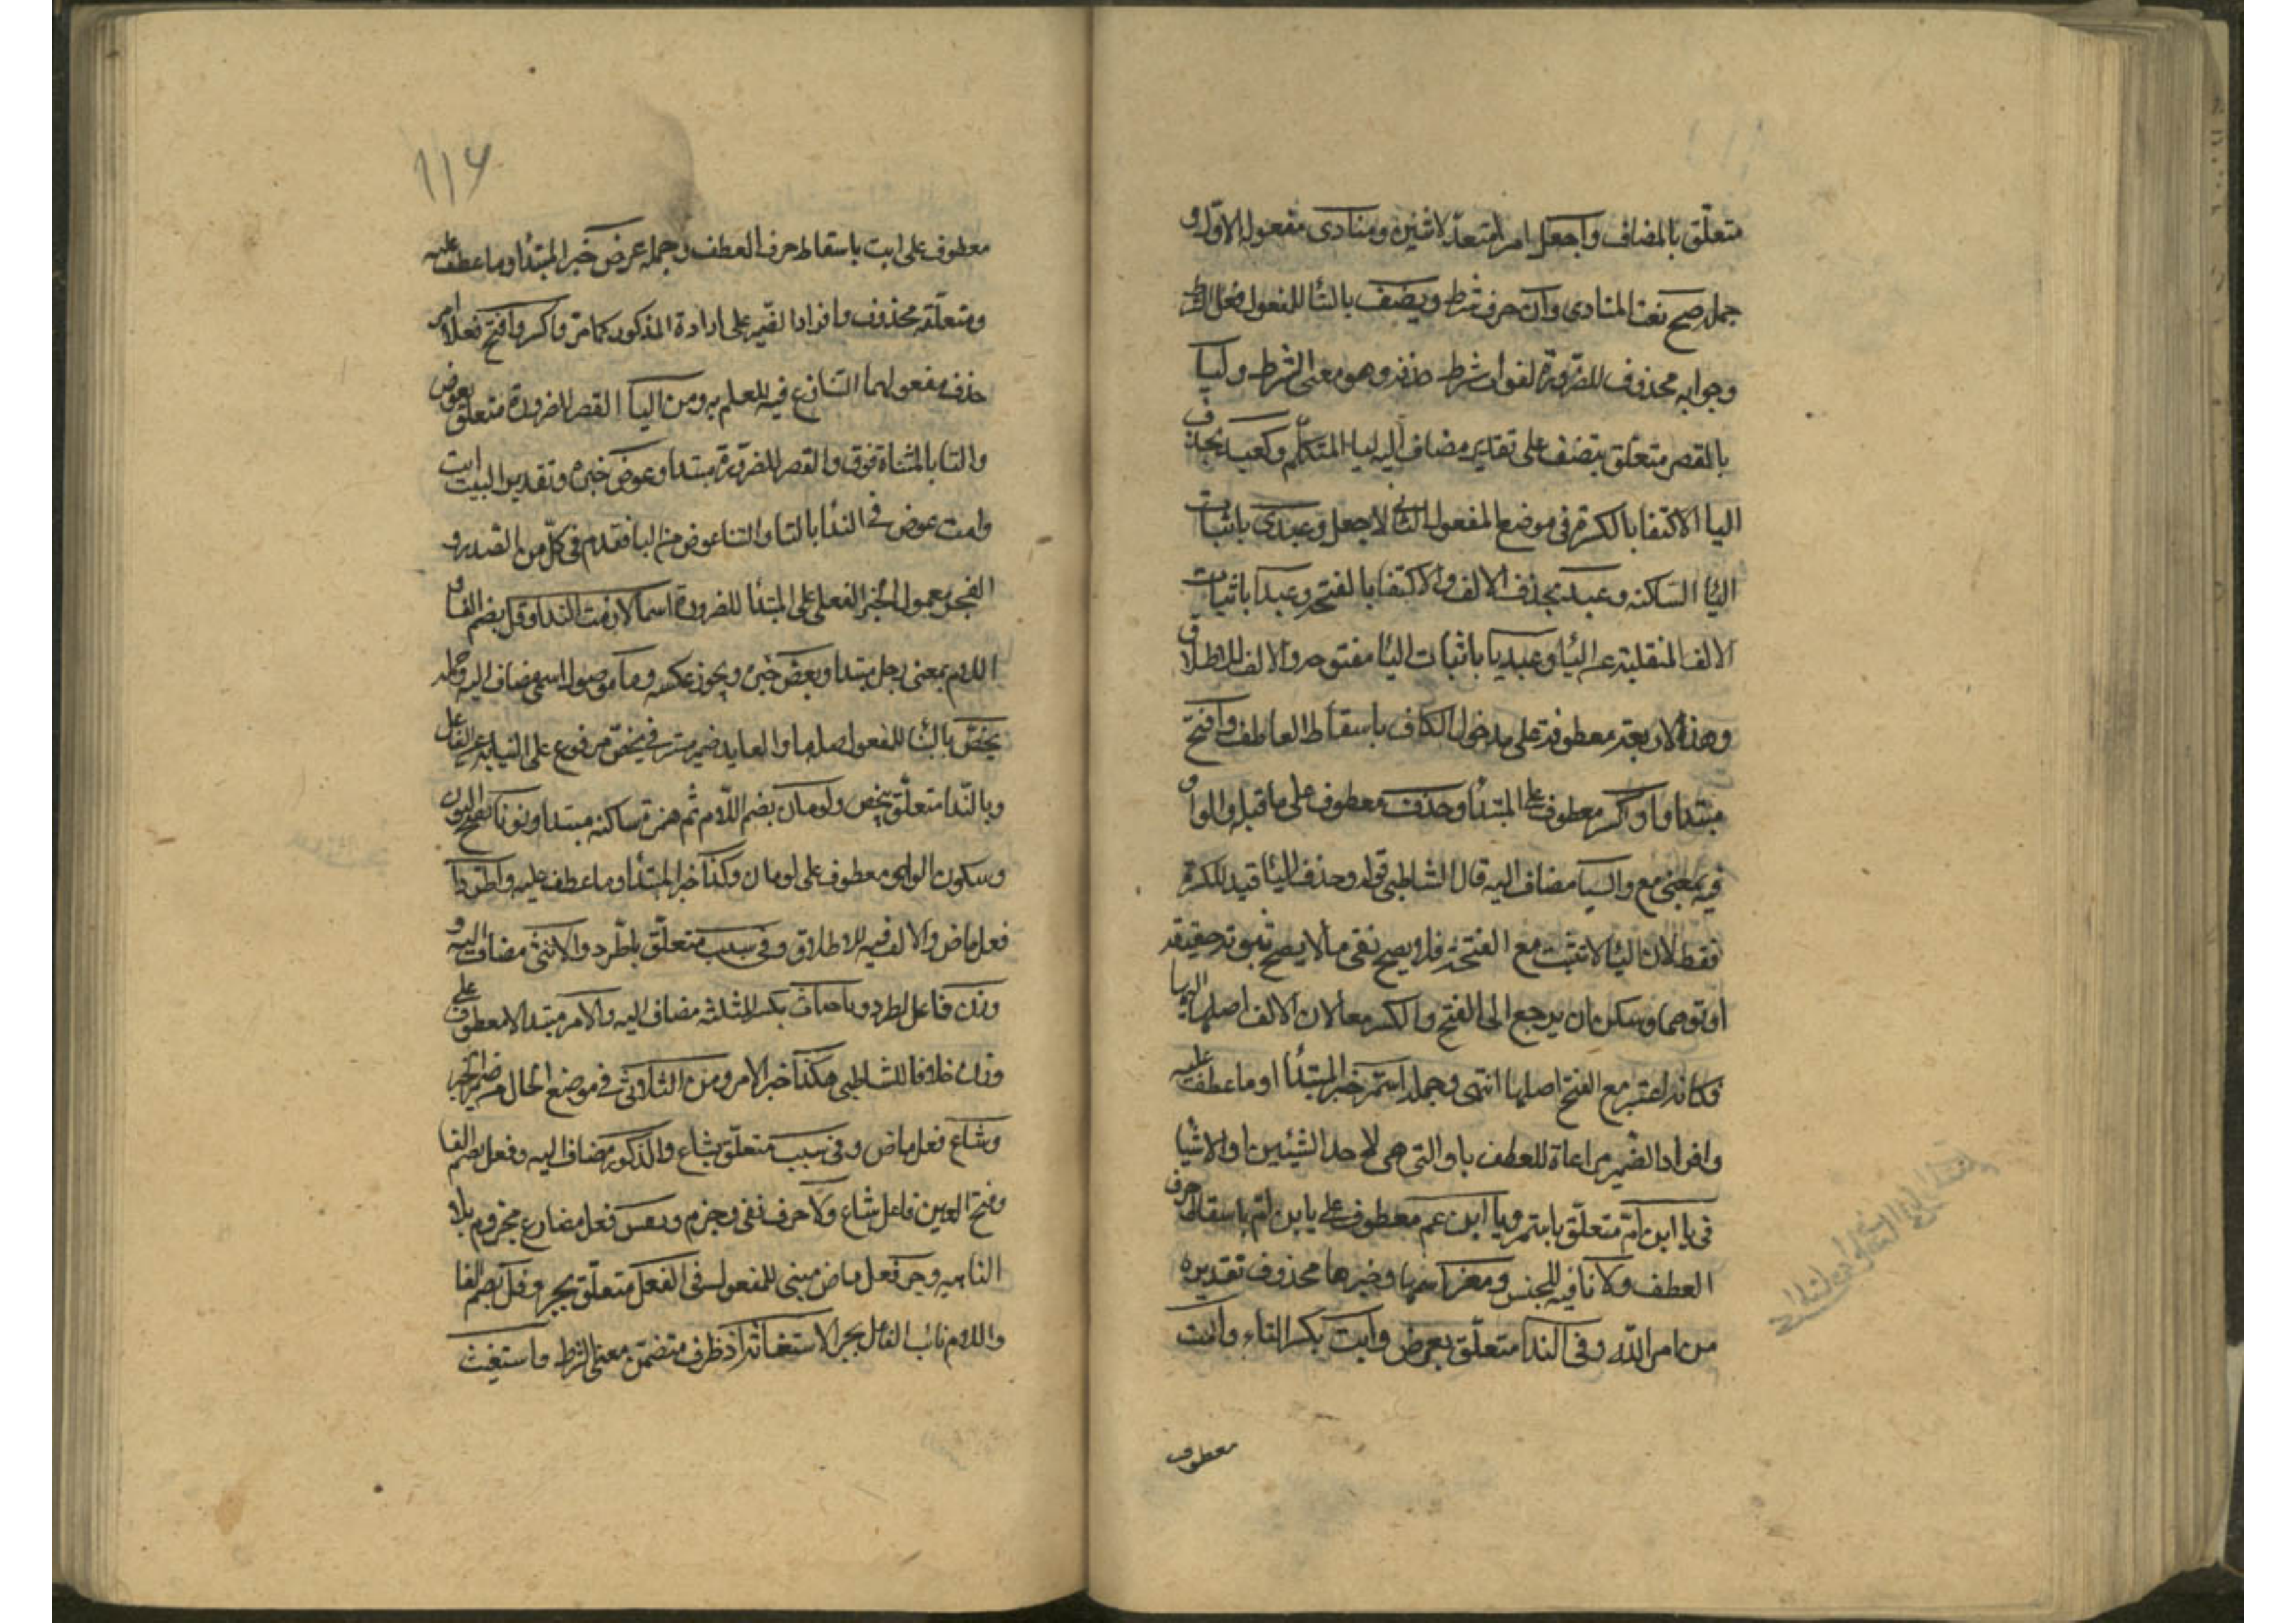 متعلّق بالمضاف واجعل امر متعدّ لاثنين ومنادى مفعوله الاوّل و
جملة صح نعت المنادى وان حرف شرط ويضف بالبنا للمفعول فعل الشرط
وجوابه محذوف للضرورة لفوات شرط حذفه وهو معنى الشرط وليا
بالقصر متعلق بيضف على تقدير مضاف اليه ليا المتكلّم وكعبد بحذف
اليا الاكتفا بالكسرة فى موضع المفعول الثانى لاجعل وعبدى باثبات
اليا الساكنه وعبد بحذف الالف والاكتفا بالفتحه وعبدا باثبات
الالف المنقلبة عن اليا وعبديا باثبات اليا مفتوحه والالف للاطلاق
وهذه الاربعة معطوفة على مدخول الكاف باسقاط العاطف وافتح
مبتدا واو كسر معطوف على المبتدا وحذف معطوف على ما قبله والواو
فيه بمعنى مع واليا مضاف اليه قال الشاطبى قوله وحذف اليا قيد للكسرة
فقط لان اليا لا تثبت مع الفتحة فلا يصح نفى ما لا يصح ثبوته حقيقة
او توهما ويمكن ان يرجع الى الفتح والكسر معا لان الالف اصلها اليا
فكانه اعتبر مع الفتح اصلها انتهى وجملة استمر خبر المبتدأ وما عطف عليه
وافراد الضمير مراعاة للعطف باو التى هى لاحد الشيئين او الاشيا
فى يا ابن امّ متعلّق باستمر ويا ابن عم معطوف على يا بن امّ باسقاط حرف
العطف ولا نافيه للجنس ومفر اسمها وخبرها محذوف تقديره
من امر الله وفى الندا متعلّق بعرض وابت بكسر التاء وامت
معطوف
١١٦
معطوف على ابت باسقاط حرف العطف وجملة عرض خبر المبتدأ وما عطف عليه
ومتعلّقه محذوف وافراد الضمير على ارادة المذكور كما مرّ واكسر وافتح فعلا امر
حذف مفعولهما التنازع فيه للعلم به ومن اليا القصر للضرورة متعلق بعوض
والتا بالمثناة فوق والقصر للضرورة مبتدا وعوض خبره وتقدير البيت ابت
وامت عرض فى الندا بالتا والتا عوض من اليا فقدم فى كلّ من الصدر و
العجز معمول الخبر الفعلى على المبتدا للضرورة اسما لازمت الندا وفل بضم الفا و
اللام بمعنى رجل مبتدا وبعض خبره ويجوز عكسه وما موصول اسمى مضاف اليه وجملة
يخصّ بالبنا للمفعول صلها والعايد ضمير مستتر فى يخصّ مرفوع على النيابة عن الفاعل
وبالنّدا متعلّق بيخص ولومان بضم اللام ثم همزة ساكنه مبتدا ونومان بفتح النون
وسكون الواو معطوف على لومان وكذا خبر المبتدأ وما عطف عليه واطردا
فعل ماض والالف فيه للاطلاق وفى سبب متعلّق باطّرد والانثى مضاف اليه و
وزن فاعل اطرد ويا خباث بكسر المثلثه مضاف اليه والامر مبتدا لا معطوف على
وزن خلافا للشاطبى هكذا خبر الامر ومن الثلاثى فى موضع الحال من ضمير الخبر
وشاع فعل ماض وفى سبب متعلّق بشاع والذكور مضاف اليه وفعل بضم الفا
وفتح العين فاعل شاع ولا حرف نفى وجزم وتقس فعل مضارع مجزوم بلا
الناهيه وجر فعل ماض مبنى للمفعول وفى الفعل متعلّق بجر وفل بضم الفا
واللام نائب الفاعل بجر الاستغاثة اذ ظرف متضمّن معنى الشرط واستغيث